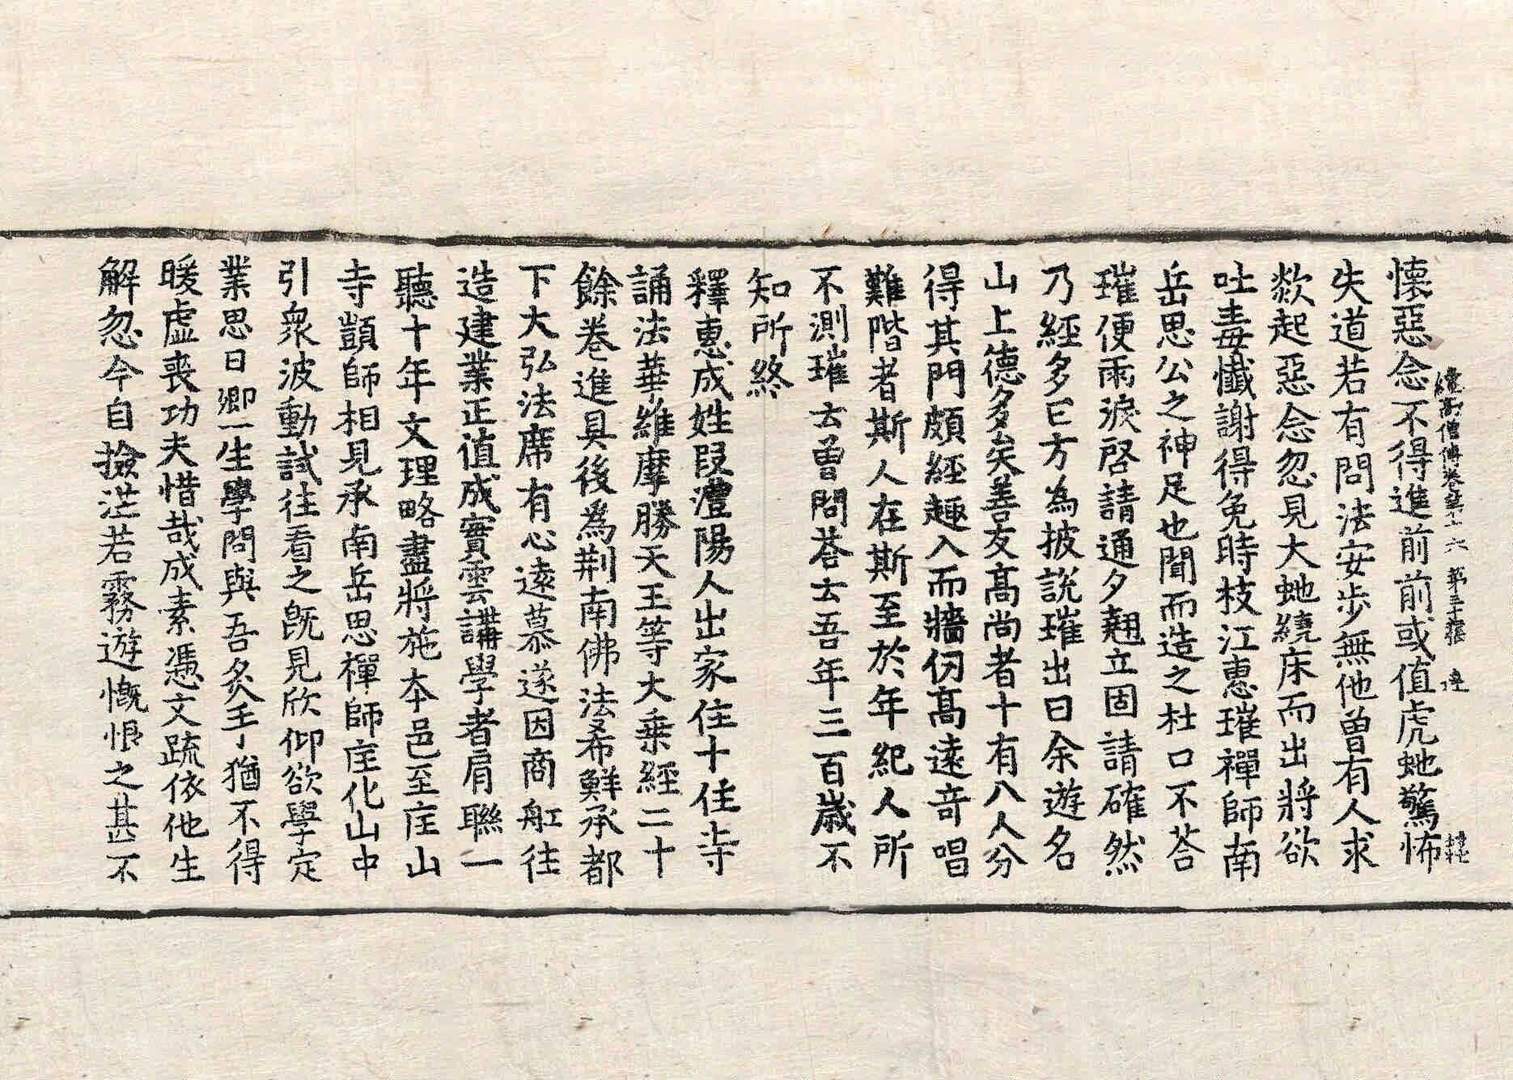 續高僧傳卷第十六 第三十張 達
懷惡念不得進前前或值虎虵驚怖
失道若有問法安步無他曽有人求
欻起惡念忽見大虵繞床而出將欲
吐毒懺謝得免時枝江惠璀禪師南
岳思公之神足也聞而造之杜口不荅
璀便雨淚啓請通夕翹立固請確然
乃經多日方為披說璀出曰余遊名
山上德多矣善友髙尚者十有八人分
得其門頗經趣入而牆仞髙遠竒唱
難階者斯人在斯至於年紀人所
不測璀云曽問荅云吾年三百歲不
知所終
釋惠成姓段澧陽人出家住十住寺
誦法華維摩勝天王等大乗經二十
餘卷進具後為荆南佛法希鮮承都
下大弘法席有心遠慕遂因商舡往
造建業正值成實雲講學者肩聯一
聽十年文理略盡將施本邑至庢山
寺顗師相見承南岳思禪師庢化山中
引衆波動試往看之旣見欣仰欲學定
業思曰卿一生學問與吾炙手猶不得
暖虛喪功夫惜哉成素憑文䟽依他生
解忽今自撿茫若霧遊慨恨之甚不